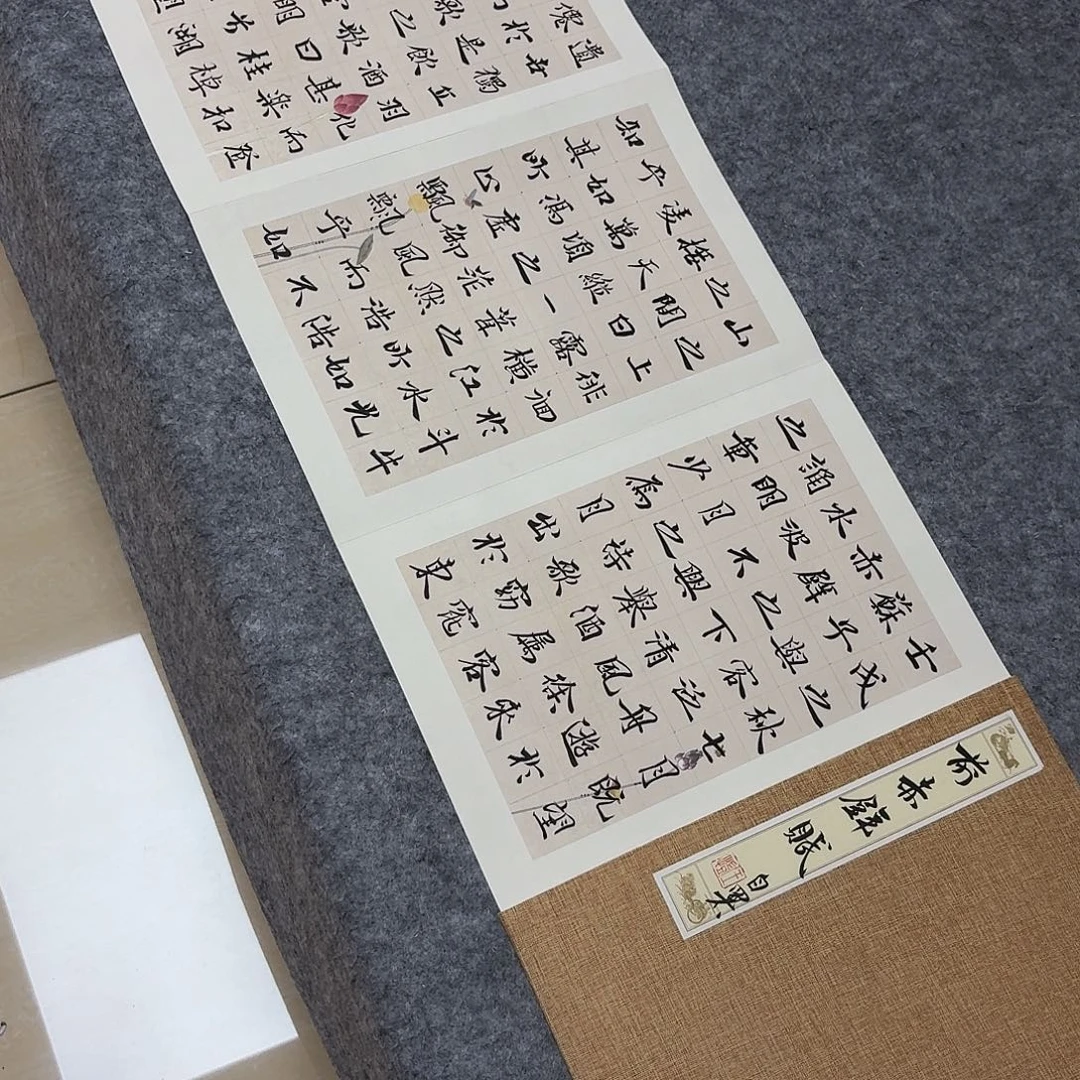 前赤壁賦
壬戌之秋七月既望
蘇子與客泛舟遊於
赤壁之下清風徐來
水波不興舉酒屬客
誦明月之詩歌窈窕
之章少焉月出於東
山之上徘徊於斗牛
之間白露橫江水光
接天縱一葦之所如
凌萬頃之茫然浩浩
乎如馮虛御風而不
知其所止飄飄乎如
遺世獨立羽化而登
僊於是飲酒甚樂扣
歌之歌曰桂棹
明兮溯